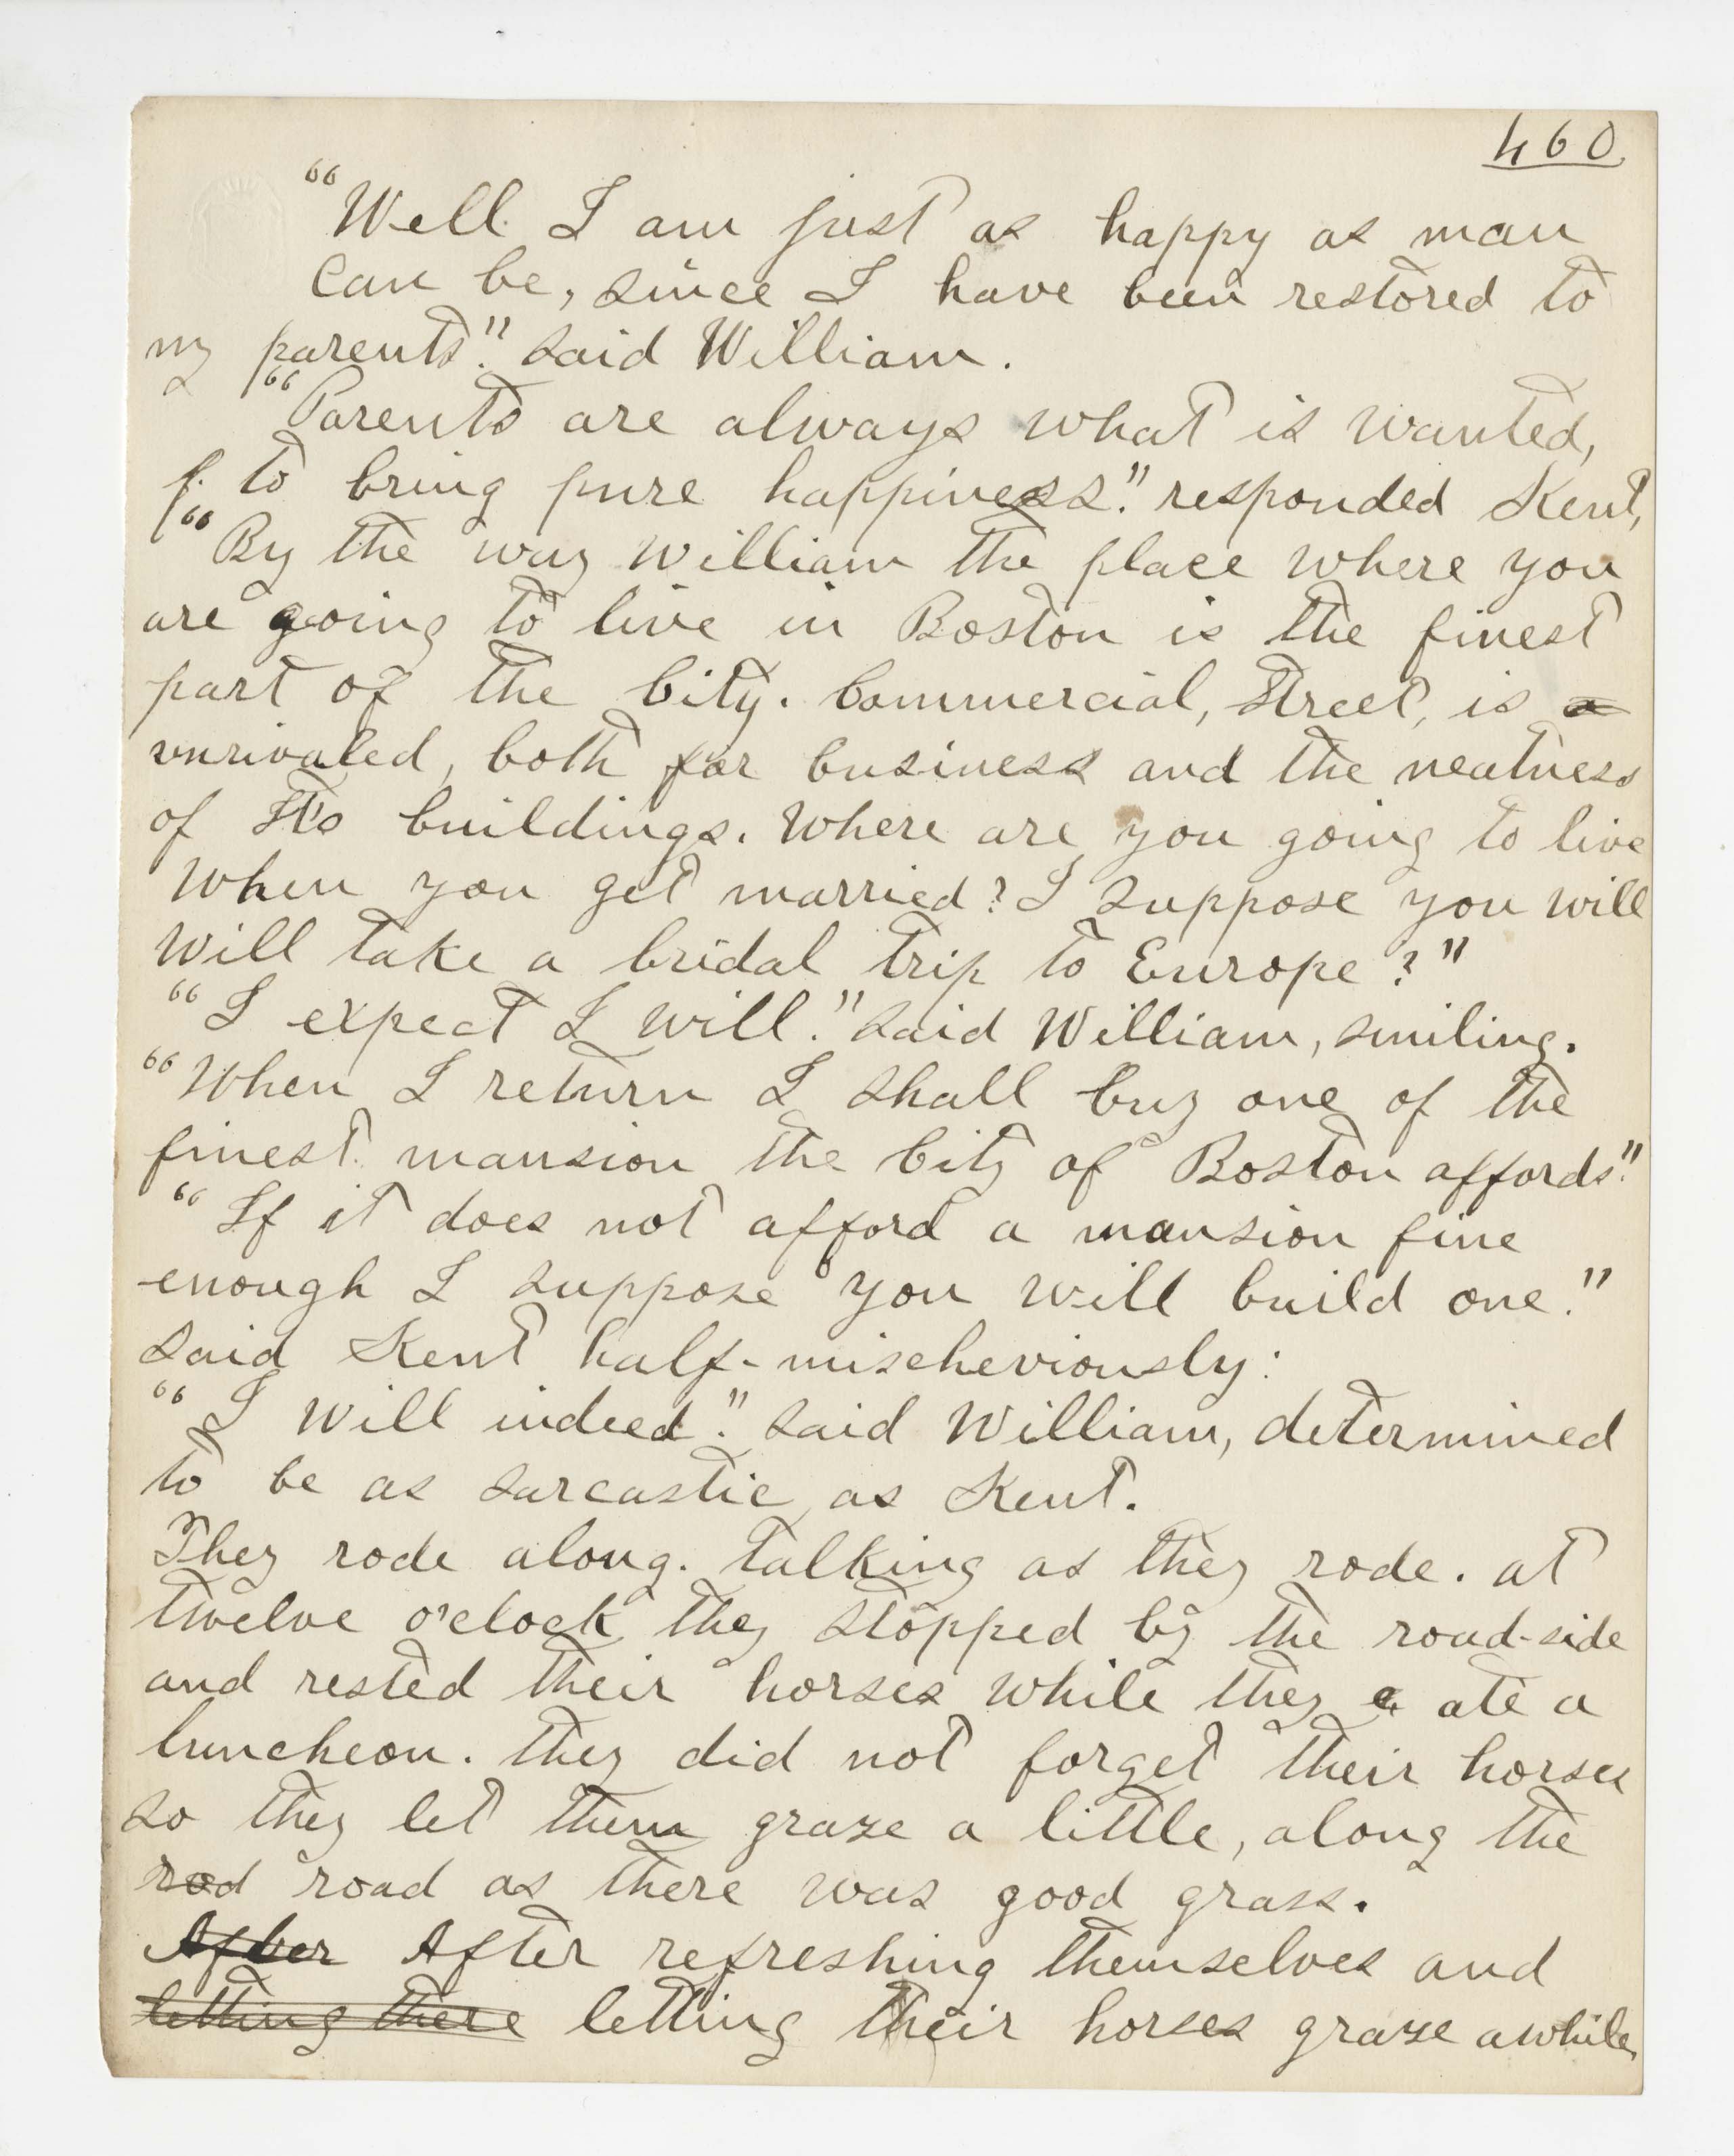 460
"Well I am just as happy as man
can be, since I have been restored to
my parents." said William.
"Parents are always what is wanted,
to bring pure happiness." responded Kent,
"By the way William the place where you
are going to live in Boston is the finest
part of the City. Commercial, Street, is a
unrivaled, both for business and the neatness
of Its buildings. Where are you going to live
when you get married? I suppose you will
will take a bridal trip to Europe?"
"I expect I will." said William, smiling.
"When I return I shall buy one of the
finest mansion the City of Boston affords."
"If it does not afford a mansion fine
enough I suppose you will build one."
said Kent half-mischeviously:
"I will indeed." said William, determined
to be as sarcastic as Kent.
They rode along. talking as they rode. at
twelve o'clock they stopped by the road-side
and rested their horses while they e ate a
luncheon. they did not forget their horses
so they let them graze a little, along the
rod road as there was good grass.
After After refreshing themselves and
letting there letting their horses graze awhile,